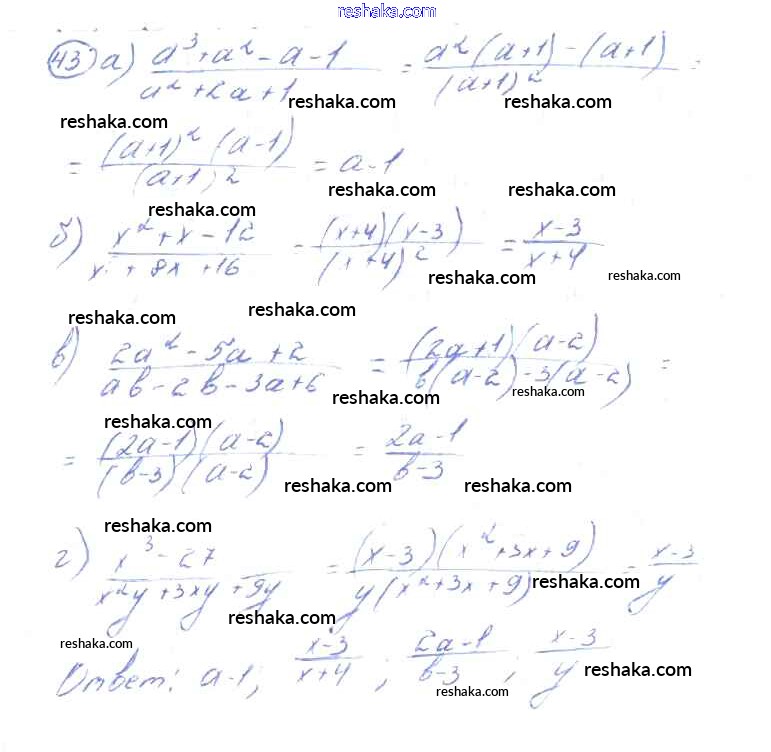 reshaka.com
43 а) (a³+a²-a-1)/(a²+2a+1) = (a²(a+1)-(a+1))/(a+1)² =
reshaka.com reshaka.com
reshaka.com
= ((a+1)²(a-1))/(a+1)² = a-1
reshaka.com reshaka.com
reshaka.com
б) (x²+x-12)/(x²+8x+16) = ((x+4)(x-3))/(x+4)² = (x-3)/(x+4)
reshaka.com reshaka.com
reshaka.com reshaka.com
в) (2a²-5a+2)/(ab-2b-3a+6) = ((2a+1)(a-2))/(b(a-2)-3(a-2)) =
reshaka.com reshaka.com
reshaka.com
= ((2a-1)(a-2))/((b-3)(a-2)) = (2a-1)/(b-3)
reshaka.com reshaka.com
reshaka.com
г) (x³-27)/(x²y+3xy+9y) = ((x-3)(x²+3x+9))/(y(x²+3x+9)) = (x-3)/y
reshaka.com
reshaka.com
reshaka.com
Ответ: a-1; (x-3)/(x+4); (2a-1)/(b-3); (x-3)/y
reshaka.com
reshaka.com